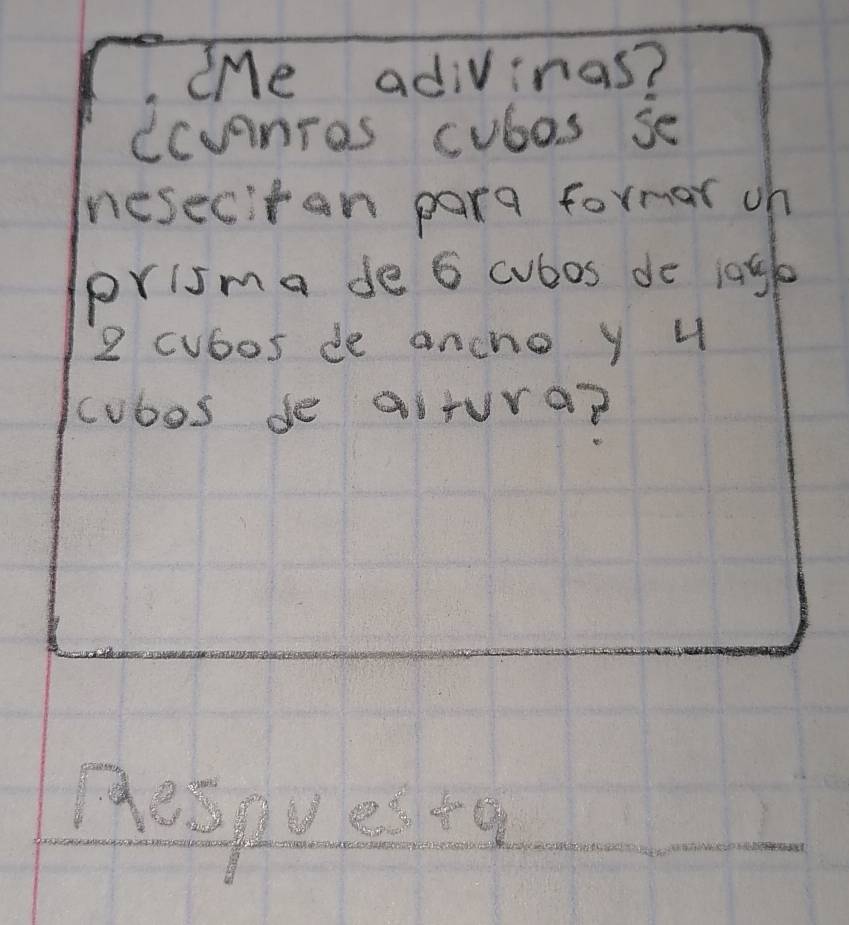 ¿Me adivinas?
¿cuantos cubos se
nesecitan para formar un
prisma de 6 cubos de largo
2 cubos de ancho y 4
cubos de altura?
Respuesta